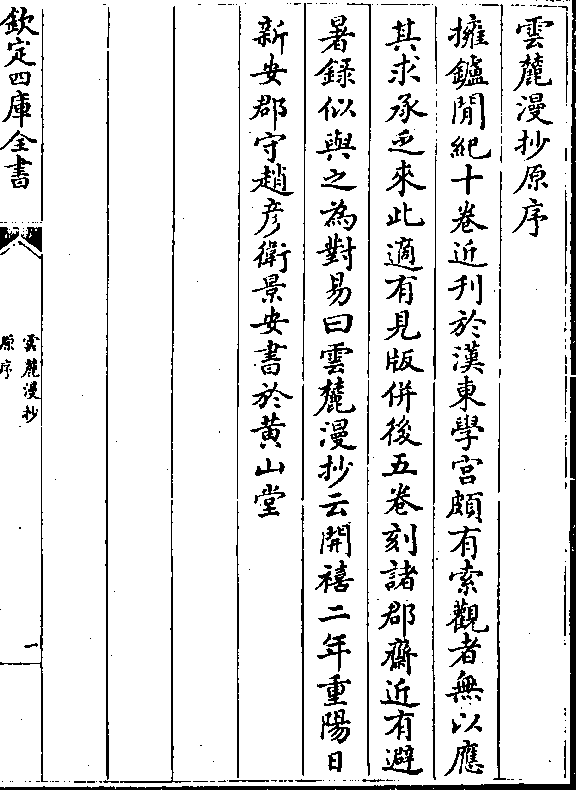 雲麓漫抄原序
擁鑪閒紀十卷近刊於漢東學宮頗有索觀者無以應
其求承乏來此適有見版併後五卷刻諸郡齋近有避
暑錄似與之為對易曰雲麓漫抄云開禧二年重陽日
新安郡守趙彥衛景安書於黃山堂
欽定四庫全書
雲麓漫抄
原序
一